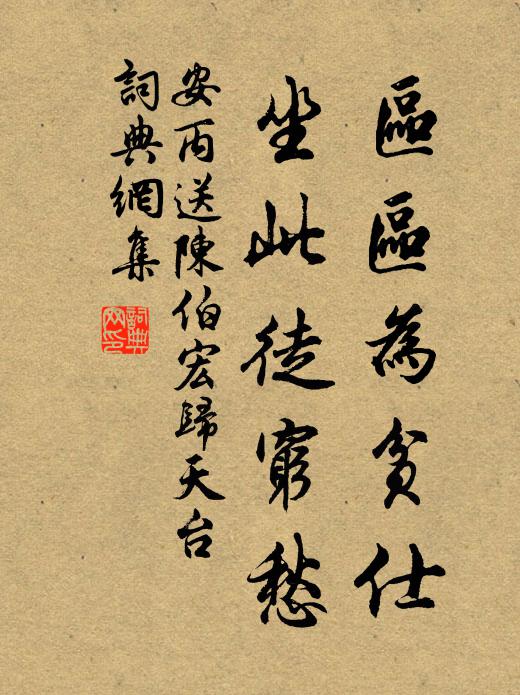 區區為貧仕
坐此徒窮愁
安丙送陳伯宏歸天台
詞典網集
詞典网印